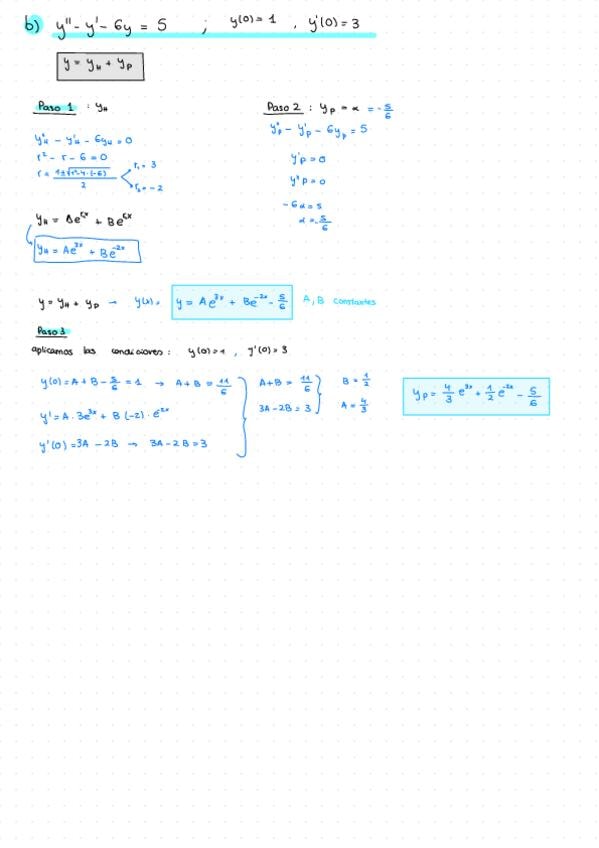 b) y'' - y' - 6y = 5 ; y(0) = 1 , y'(0) = 3
y = y_H + y_P
Paso 1 : y_H
y''_H - y'_H - 6y_H = 0
r² - r - 6 = 0
r = 1±√1²-4·(-6) / 2
r₁ = 3
r₂ = -2
y_H = Ae^rx + Be^rx
y_H = Ae^3x + Be^-2x
Paso 2 : y_P = α = -5/6
y''_P - y'_P - 6y_P = 5
y'P = 0
y''P = 0
-6α = 5
α = -5/6
y = y_H + y_P → y(x) = y = Ae^3x + Be^-2x - 5/6 A, B constantes
Paso 3
aplicamos las condiciones : y(0) = 1 , y'(0) = 3
y(0) = A + B - 5/6 = 1 → A + B = 11/6
y' = A · 3e^3x + B (-2) · e^-2x
y'(0) = 3A - 2B → 3A - 2B = 3
A + B = 11/6
3A - 2B = 3
B = 1/2
A = 4/3
y_P = 4/3 e^3x + 1/2 e^-2x - 5/6